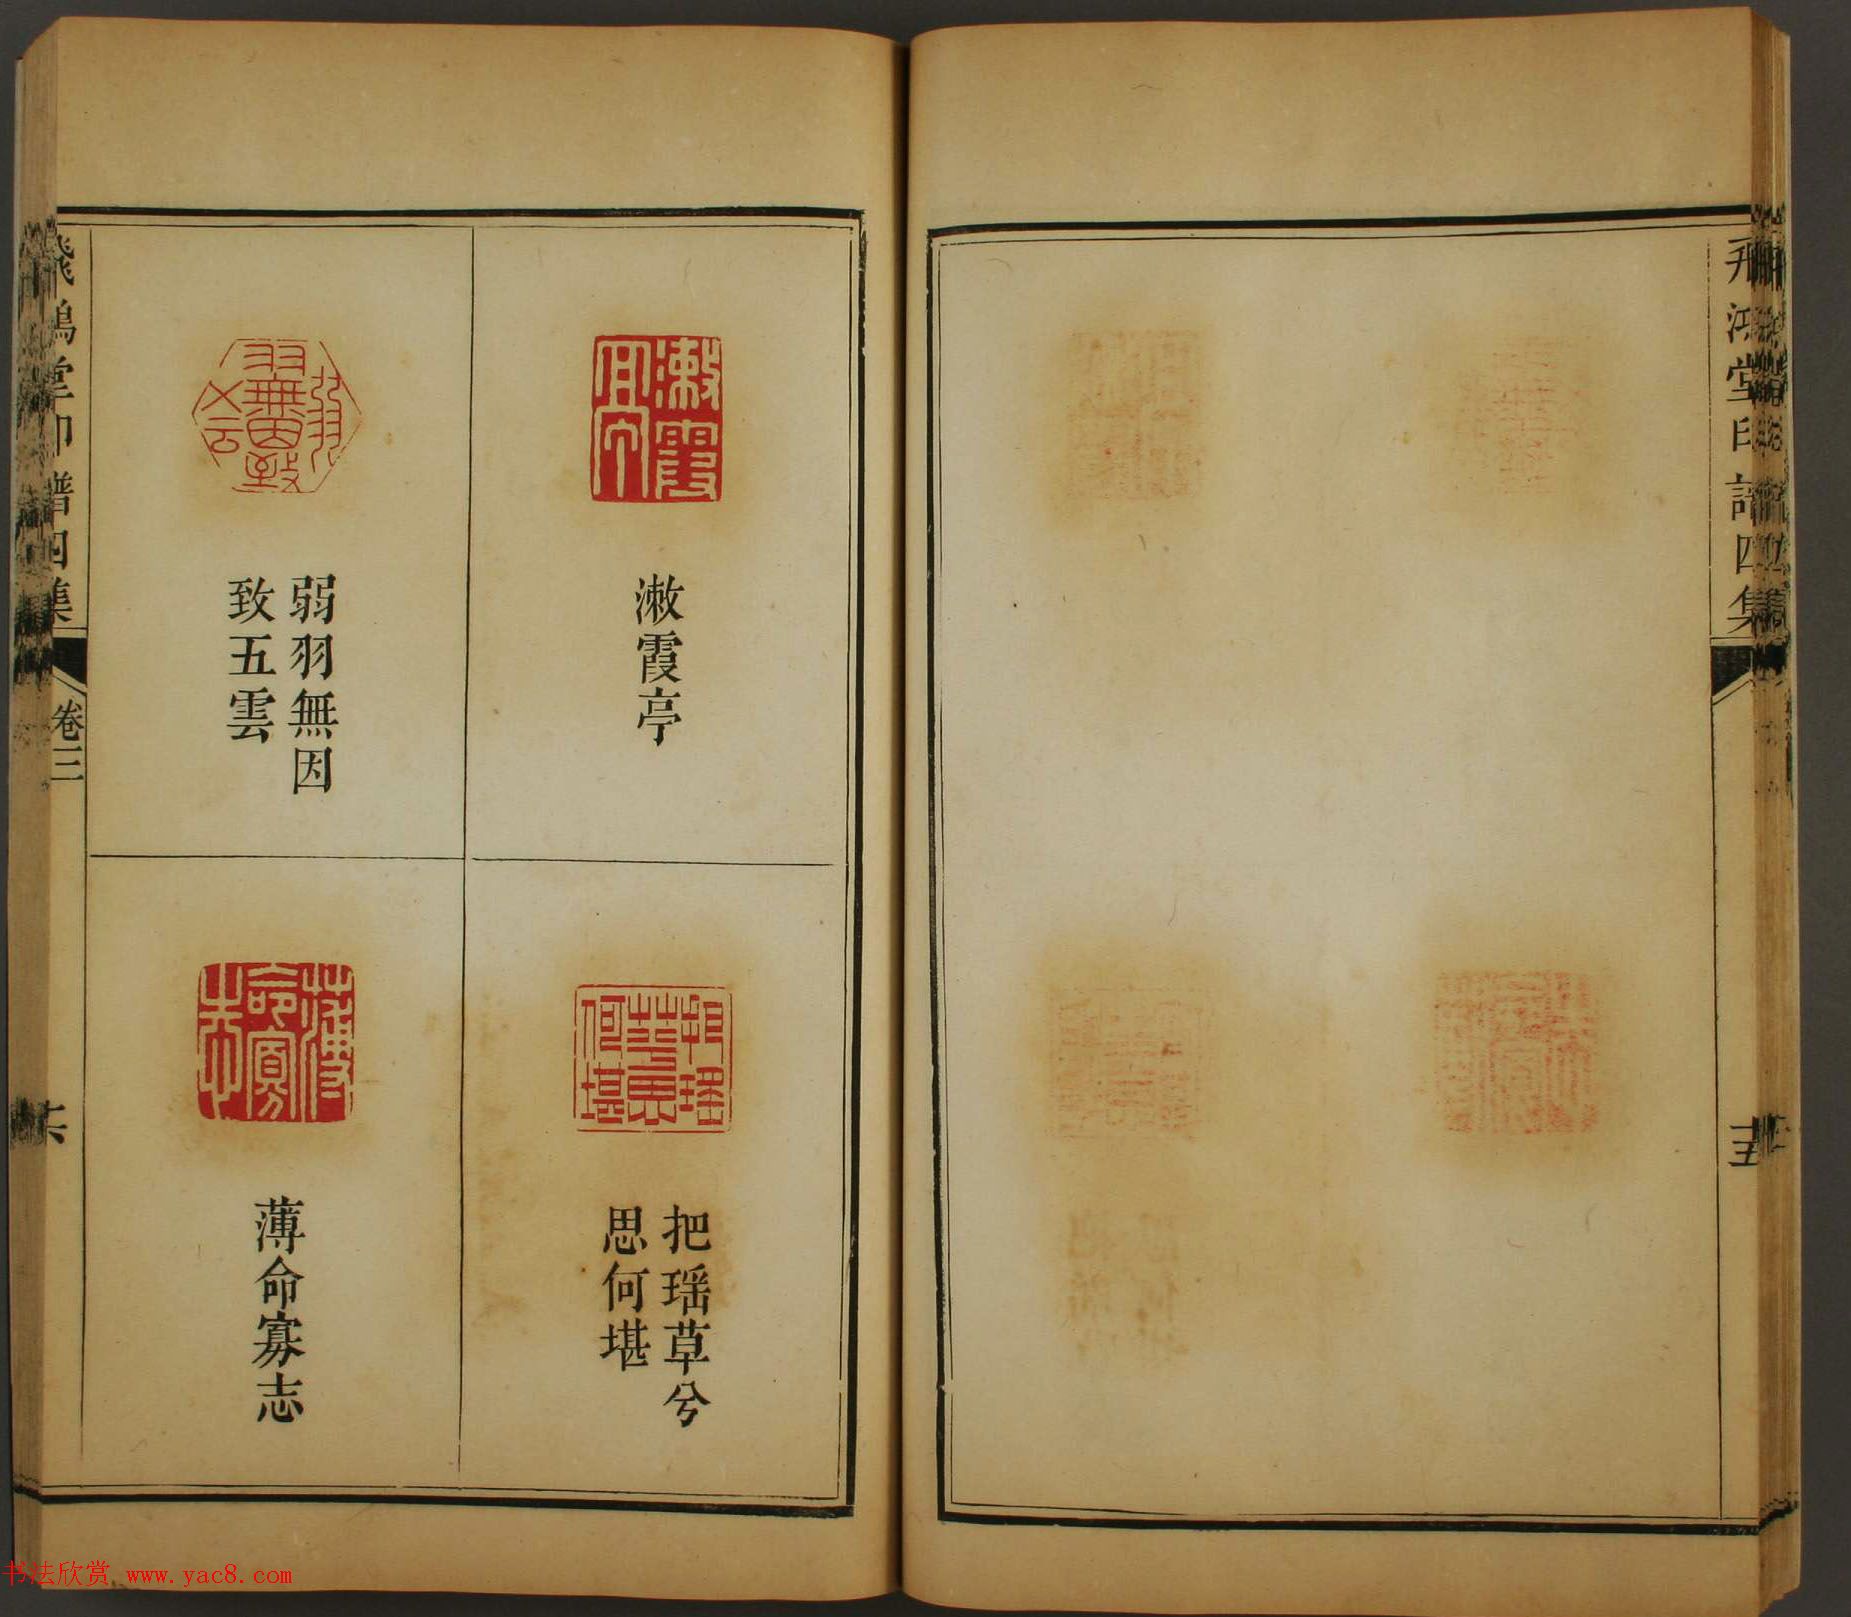 飛鴻堂印譜四集
漱霞亭
把瑶草兮
思何堪
弱羽無因
致五雲
薄命寡志
飛鴻堂印譜四集
卷三
书法欣赏 www.yac8.com